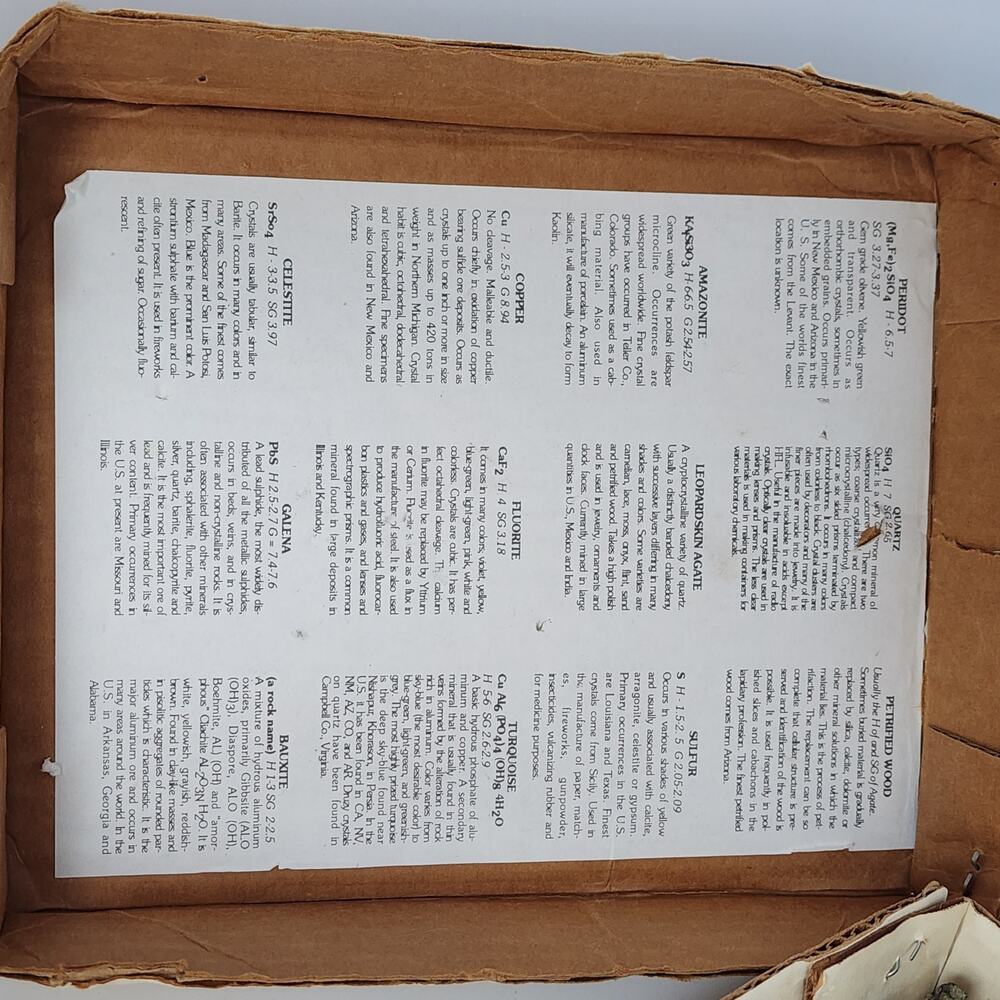 PERIDOT
(Mg,Fe)2SiO4 H - 6.5-7
SG 3.27-3.37
Gem grade olivene. Yellowish green
and transparent. Occurs as
orthorhombic crystals, sometimes in
embedded grains. Occurs primari-
ly in New Mexico and Arizona in the
U. S. Some of the worlds finest
comes from the Levant. The exact
location is unknown.
AMAZONITE
KAlSi3O3 H 6-6.5 G 2.54-2.57
Green variety of the potash feldspar
microcline. Occurrences are
widespread worldwide. Fine crystal
groups have occurred in Teller Co.,
Colorado. Sometimes used as a cab-
bing material. Also used in
manufacture of porcelain. An aluminum
silicate, it will eventually decay to form
Kaolin.
COPPER
Cu H 2.5-3 G 8.94
No cleavage. Malleable and ductile.
Occurs chiefly in oxidation of copper
bearing sulfide ore deposits. Occurs as
crystals up to one inch or more in size
and as masses up to 420 tons in
weight in Northern Michigan. Crystal
habit is cubic, octohedral, dodecahedral
and tetrahexahedral. Fine specimens
are also found in New Mexico and
Arizona.
CELESTITE
SrSo4 H - 3-3.5 SG 3.97
Crystals are usually tabular, similar to
Barite. It occurs in many colors and in
many areas. Some of the finest comes
from Madagascar and San Luis Potosi,
Mexico. Blue is the prominent color. A
strontium sulphate with barium and cal-
cite often present. It is used in fireworks
and refining of sugar. Occasionally fluo-
rescent.
QUARTZ
SiO4 H 7 SG 2.65
Quartz is a very common mineral of
widespread occurrence. There are two
types; coarse crystalline and compact
microcrystalline (chalcedony). Crystals
occur as six sided prisms terminated by
rhombohedrons. It occurs in many colors
from colorless to black. Crystal clusters are
often used by decorators and many of the
finer pieces are made into jewelry. It is
infusable and insoluable in acids except
HFL. Useful in the manufacture of radio
crystals. Optically clear crystals are used in
making lenses and prisms. The less clear
materials is used in makin containers for
various laboratory chemicals.
LEOPARDSKIN AGATE
A cryptocrystalline variety of quartz.
Usually a distinctly banded chalcedony
with successive layers differing in many
shades and colors. Some varieties are
carnelian, lace, moss, onyx, flint, sand
and petrified wood. Takes a high polish
and is used in jewelry, ornaments and
clock faces. Currently mined in large
quantities in U.S., Mexico and India.
FLUORITE
CaF2 H 4 SG 3.18
It comes in many colors; violet, yellow,
blue-green, light-green, pink, white and
colorless. Crystals are cubic. It has per-
fect octahedral cleavage. The calcium
in fluorite may be replaced by Yttrium
or Cerium. Fluorite is used as a flux in
the manufacture of steel. It is also used
to produce hydrofluoric acid, fluorocar-
bon plastics and gasses, and lenses and
spectrographic prisms. It is a common
mineral found in large deposits in
Illinois and Kentucky.
GALENA
PbS H 2.5-2.7 G = 7.4-7.6
A lead sulphide, the most widely dis-
tributed of all the metallic sulphides,
occurs in beds, veins, and in crys-
talline and non-crystalline rocks. It is
often associated with other minerals
including, sphalerite, fluorite, pyrite,
silver, quartz, barite, chalcopyrite and
calcite. It is the most important ore of
lead and is frequently mined for its sil-
ver content. Primary occurrences in
the U.S. at present are Missouri and
Illinois.
PETRIFIED WOOD
Usually the H of and SG of Agate.
Sometimes buried material is gradually
replaced by silica, calcite, dolomite or
other mineral solutions in which the
material lies. This is the process of pet-
rifaction. The replacement can be so
complete that cellular structure is pre-
served and identification of the wood is
possible. It is used frequently in pol-
ished slices and cabachons in the
lapidary profession. The finest petrified
wood comes from Arizona.
SULFUR
S H - 1.5-2.5 G 2.05-2.09
Occurs in various shades of yellow
and usually associated with calcite,
arragonite, celestite or gypsum.
Primary occurrences in the U.S.
are Louisiana and Texas. Finest
crystals come from Sicily. Used in
the, manufacture of paper, match-
es, fireworks, gunpowder,
insecticides, vulcanizing rubber and
for medicine purposes.
TURQUOISE
Cu Al6 (PO4)4 (OH)8 4H2O
H 5-6 SG 2.6-2.9
A basic hydrous phosphate of alu-
minum and copper. A secondary
mineral that is usually found in thin
veins formed by the alteration of rock
rich in aluminum. Color varies from
sky-blue (the most desirable color) to
blue-green, light-green, and greenish-
grey. The most highly prized turquoise
is the deep sky-blue found near
Nishapur, Khorasan, in Persia. In the
U.S. it has been found in CA, NV,
NM, AZ, CO, and AR. Druzy crystals
on quartz have been found in
Campbell Co., Virginia.
BAUXITE
(a rock name) H 1-3 SG 2-2.5
A mixture of hydrous aluminum
oxides, primarily Gibbsite (ALO
(OH)3), Diaspore, ALO (OH),
Boehmite, AL) (OH) and "amor-
phous" Cliachite AL2O3N H2O. It is
white, yellowish, grayish, reddish-
brown. Found in clay-like masses and
in pisolitic aggregates of rounded par-
ticles which is characteristic. It is the
major aluminum ore and occurs in
many areas around the world. In the
U.S. in Arkansas, Georgia and
Alabama.